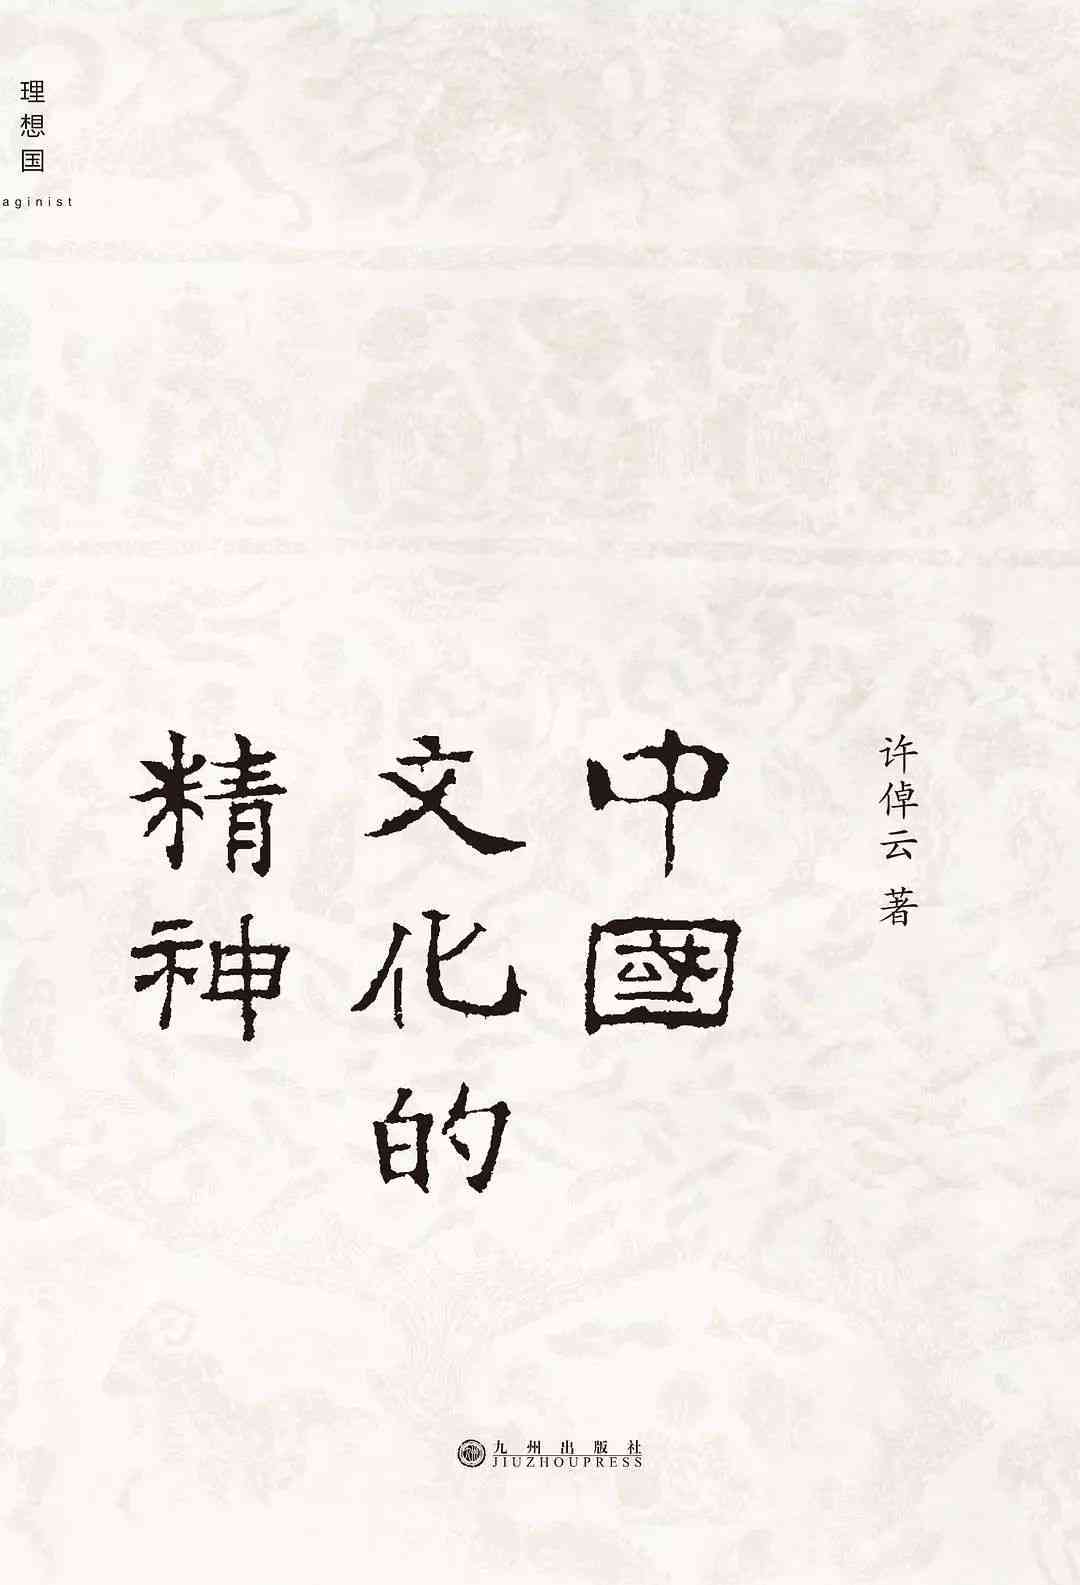 理想国
aginist
许倬云 著
中國
文化的
精神
九州出版社
JIUZHOUPRESS